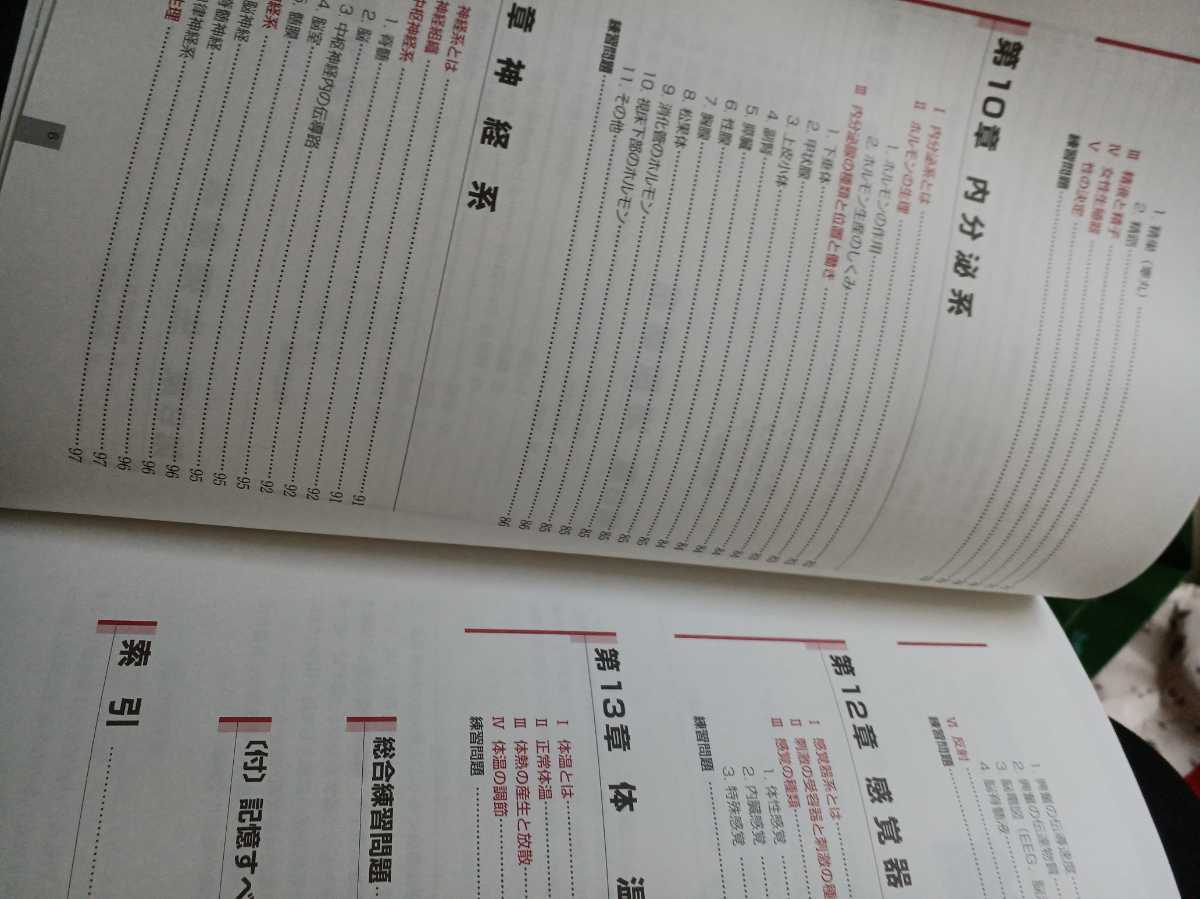 1. 精巣（睾丸）
2. 精路
Ⅲ 精液と精子
Ⅳ 女性生殖器
Ⅴ 性の決定
練習問題
第10章 内分泌系
Ⅰ 内分泌系とは
Ⅱ ホルモンの生理
1. ホルモンの作用
2. ホルモン生産のしくみ
Ⅲ 内分泌腺の種類と位置と働き
1. 下垂体
2. 甲状腺
3. 上皮小体
4. 副腎
5. 膵臓
6. 性腺
7. 胸腺
8. 松果体
9. 消化管のホルモン
10. 視床下部のホルモン
11. その他 86
練習問題 86
章 神経系
神経系とは 91
神経組織 91
中枢神経系 92
1. 脊髄 92
2. 脳 92
3. 中枢神経内の伝導路 95
4. 脳室 95
髄膜 95
経系 96
脳神経 96
脊髄神経 96
律神経系 97
生理 97
6
1. 興奮の伝導速度
2. 興奮の伝達物質
3. 脳電図（EEG，脳
4. 脳脊髄液
Ⅵ 反射
練習問題
第12章 感覚器
Ⅰ 感覚器系とは
Ⅱ 刺激の受容器と刺激の種
Ⅲ 感覚の種類
1. 体性感覚
2. 内臓感覚
3. 特殊感覚
練習問題
第13章 体 温
Ⅰ 体温とは
Ⅱ 正常体温
Ⅲ 体熱の産生と放散
Ⅳ 体温の調節
練習問題
総合練習問題
（付）記憶すべ
索引